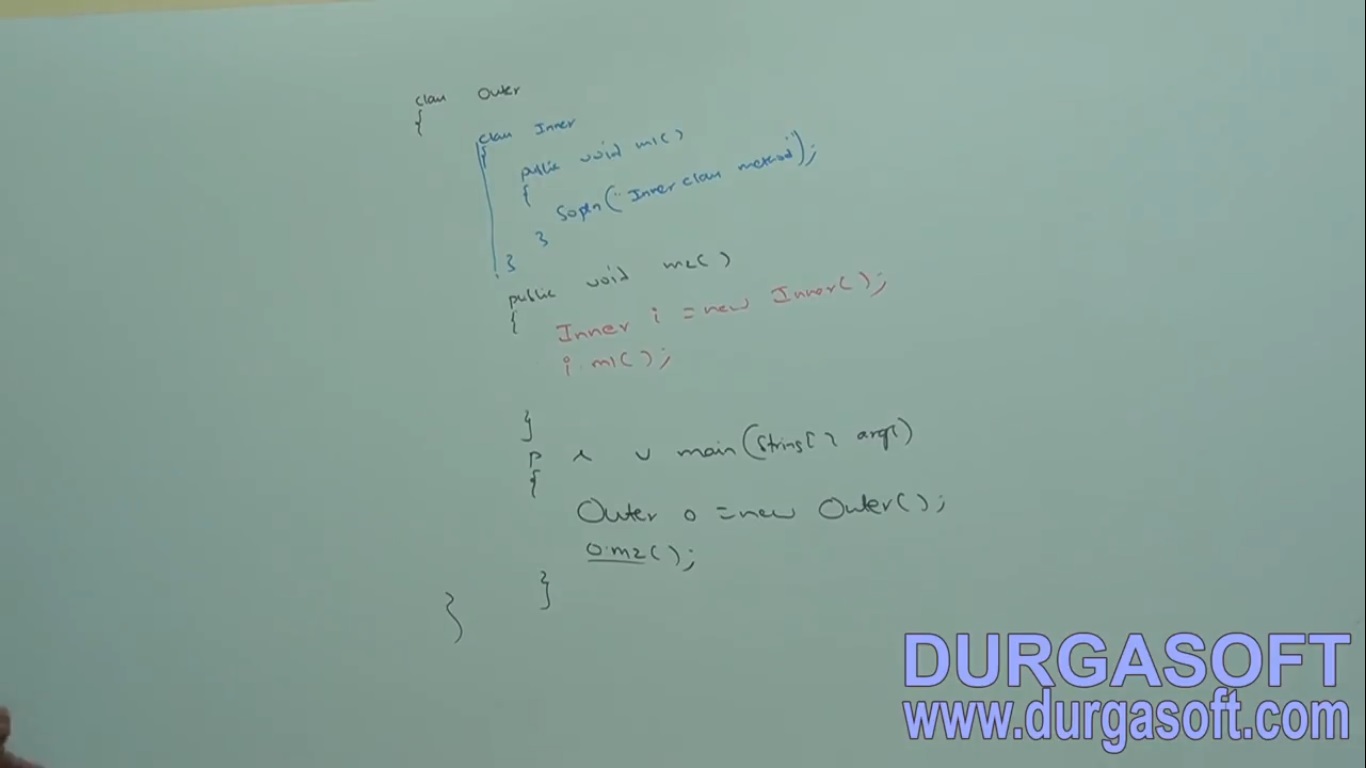 class Outer
{
class Inner
{
public void m1()
{
Sopln("Inner class method");
}
}
public void m2()
{
Inner i = new Inner();
i.m1();
}
p s v main(String[] args)
{
Outer o = new Outer();
o.m2();
}
}
DURGASOFT
www.durgasoft.com